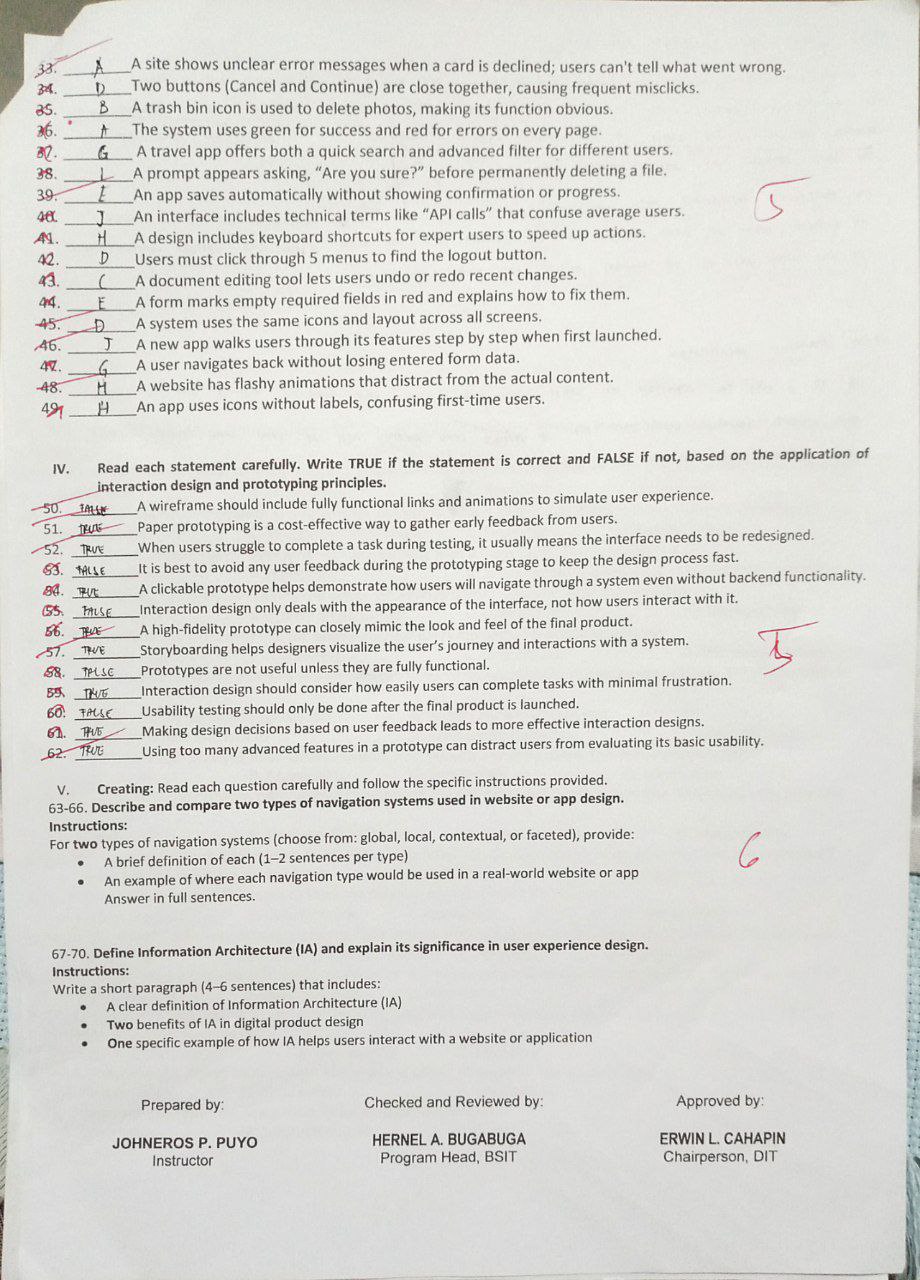 33. A A site shows unclear error messages when a card is declined; users can't tell what went wrong.
34. D Two buttons (Cancel and Continue) are close together, causing frequent misclicks.
35. B A trash bin icon is used to delete photos, making its function obvious.
36. A The system uses green for success and red for errors on every page.
37. G A travel app offers both a quick search and advanced filter for different users.
38. L A prompt appears asking, “Are you sure?” before permanently deleting a file.
39. E An app saves automatically without showing confirmation or progress.
40. J An interface includes technical terms like “API calls” that confuse average users.
41. H A design includes keyboard shortcuts for expert users to speed up actions.
42. D Users must click through 5 menus to find the logout button.
43. C A document editing tool lets users undo or redo recent changes.
44. E A form marks empty required fields in red and explains how to fix them.
45. D A system uses the same icons and layout across all screens.
46. J A new app walks users through its features step by step when first launched.
47. G A user navigates back without losing entered form data.
48. H A website has flashy animations that distract from the actual content.
49. H An app uses icons without labels, confusing first-time users.
IV. Read each statement carefully. Write TRUE if the statement is correct and FALSE if not, based on the application of
interaction design and prototyping principles.
50. FALSE A wireframe should include fully functional links and animations to simulate user experience.
51. TRUE Paper prototyping is a cost-effective way to gather early feedback from users.
52. TRUE When users struggle to complete a task during testing, it usually means the interface needs to be redesigned.
53. FALSE It is best to avoid any user feedback during the prototyping stage to keep the design process fast.
54. TRUE A clickable prototype helps demonstrate how users will navigate through a system even without backend functionality.
55. FALSE Interaction design only deals with the appearance of the interface, not how users interact with it.
56. TRUE A high-fidelity prototype can closely mimic the look and feel of the final product.
57. TRUE Storyboarding helps designers visualize the user's journey and interactions with a system.
58. FALSE Prototypes are not useful unless they are fully functional.
59. TRUE Interaction design should consider how easily users can complete tasks with minimal frustration.
60. FALSE Usability testing should only be done after the final product is launched.
61. TRUE Making design decisions based on user feedback leads to more effective interaction designs.
62. TRUE Using too many advanced features in a prototype can distract users from evaluating its basic usability.
V. Creating: Read each question carefully and follow the specific instructions provided.
63-66. Describe and compare two types of navigation systems used in website or app design.
Instructions:
For two types of navigation systems (choose from: global, local, contextual, or faceted), provide:
• A brief definition of each (1–2 sentences per type)
6
• An example of where each navigation type would be used in a real-world website or app
Answer in full sentences.
67-70. Define Information Architecture (IA) and explain its significance in user experience design.
Instructions:
Write a short paragraph (4–6 sentences) that includes:
• A clear definition of Information Architecture (IA)
• Two benefits of IA in digital product design
• One specific example of how IA helps users interact with a website or application
Prepared by: Checked and Reviewed by: Approved by:
JOHNEROS P. PUYO HERNEL A. BUGABUGA ERWIN L. CAHAPIN
Instructor Program Head, BSIT Chairperson, DIT